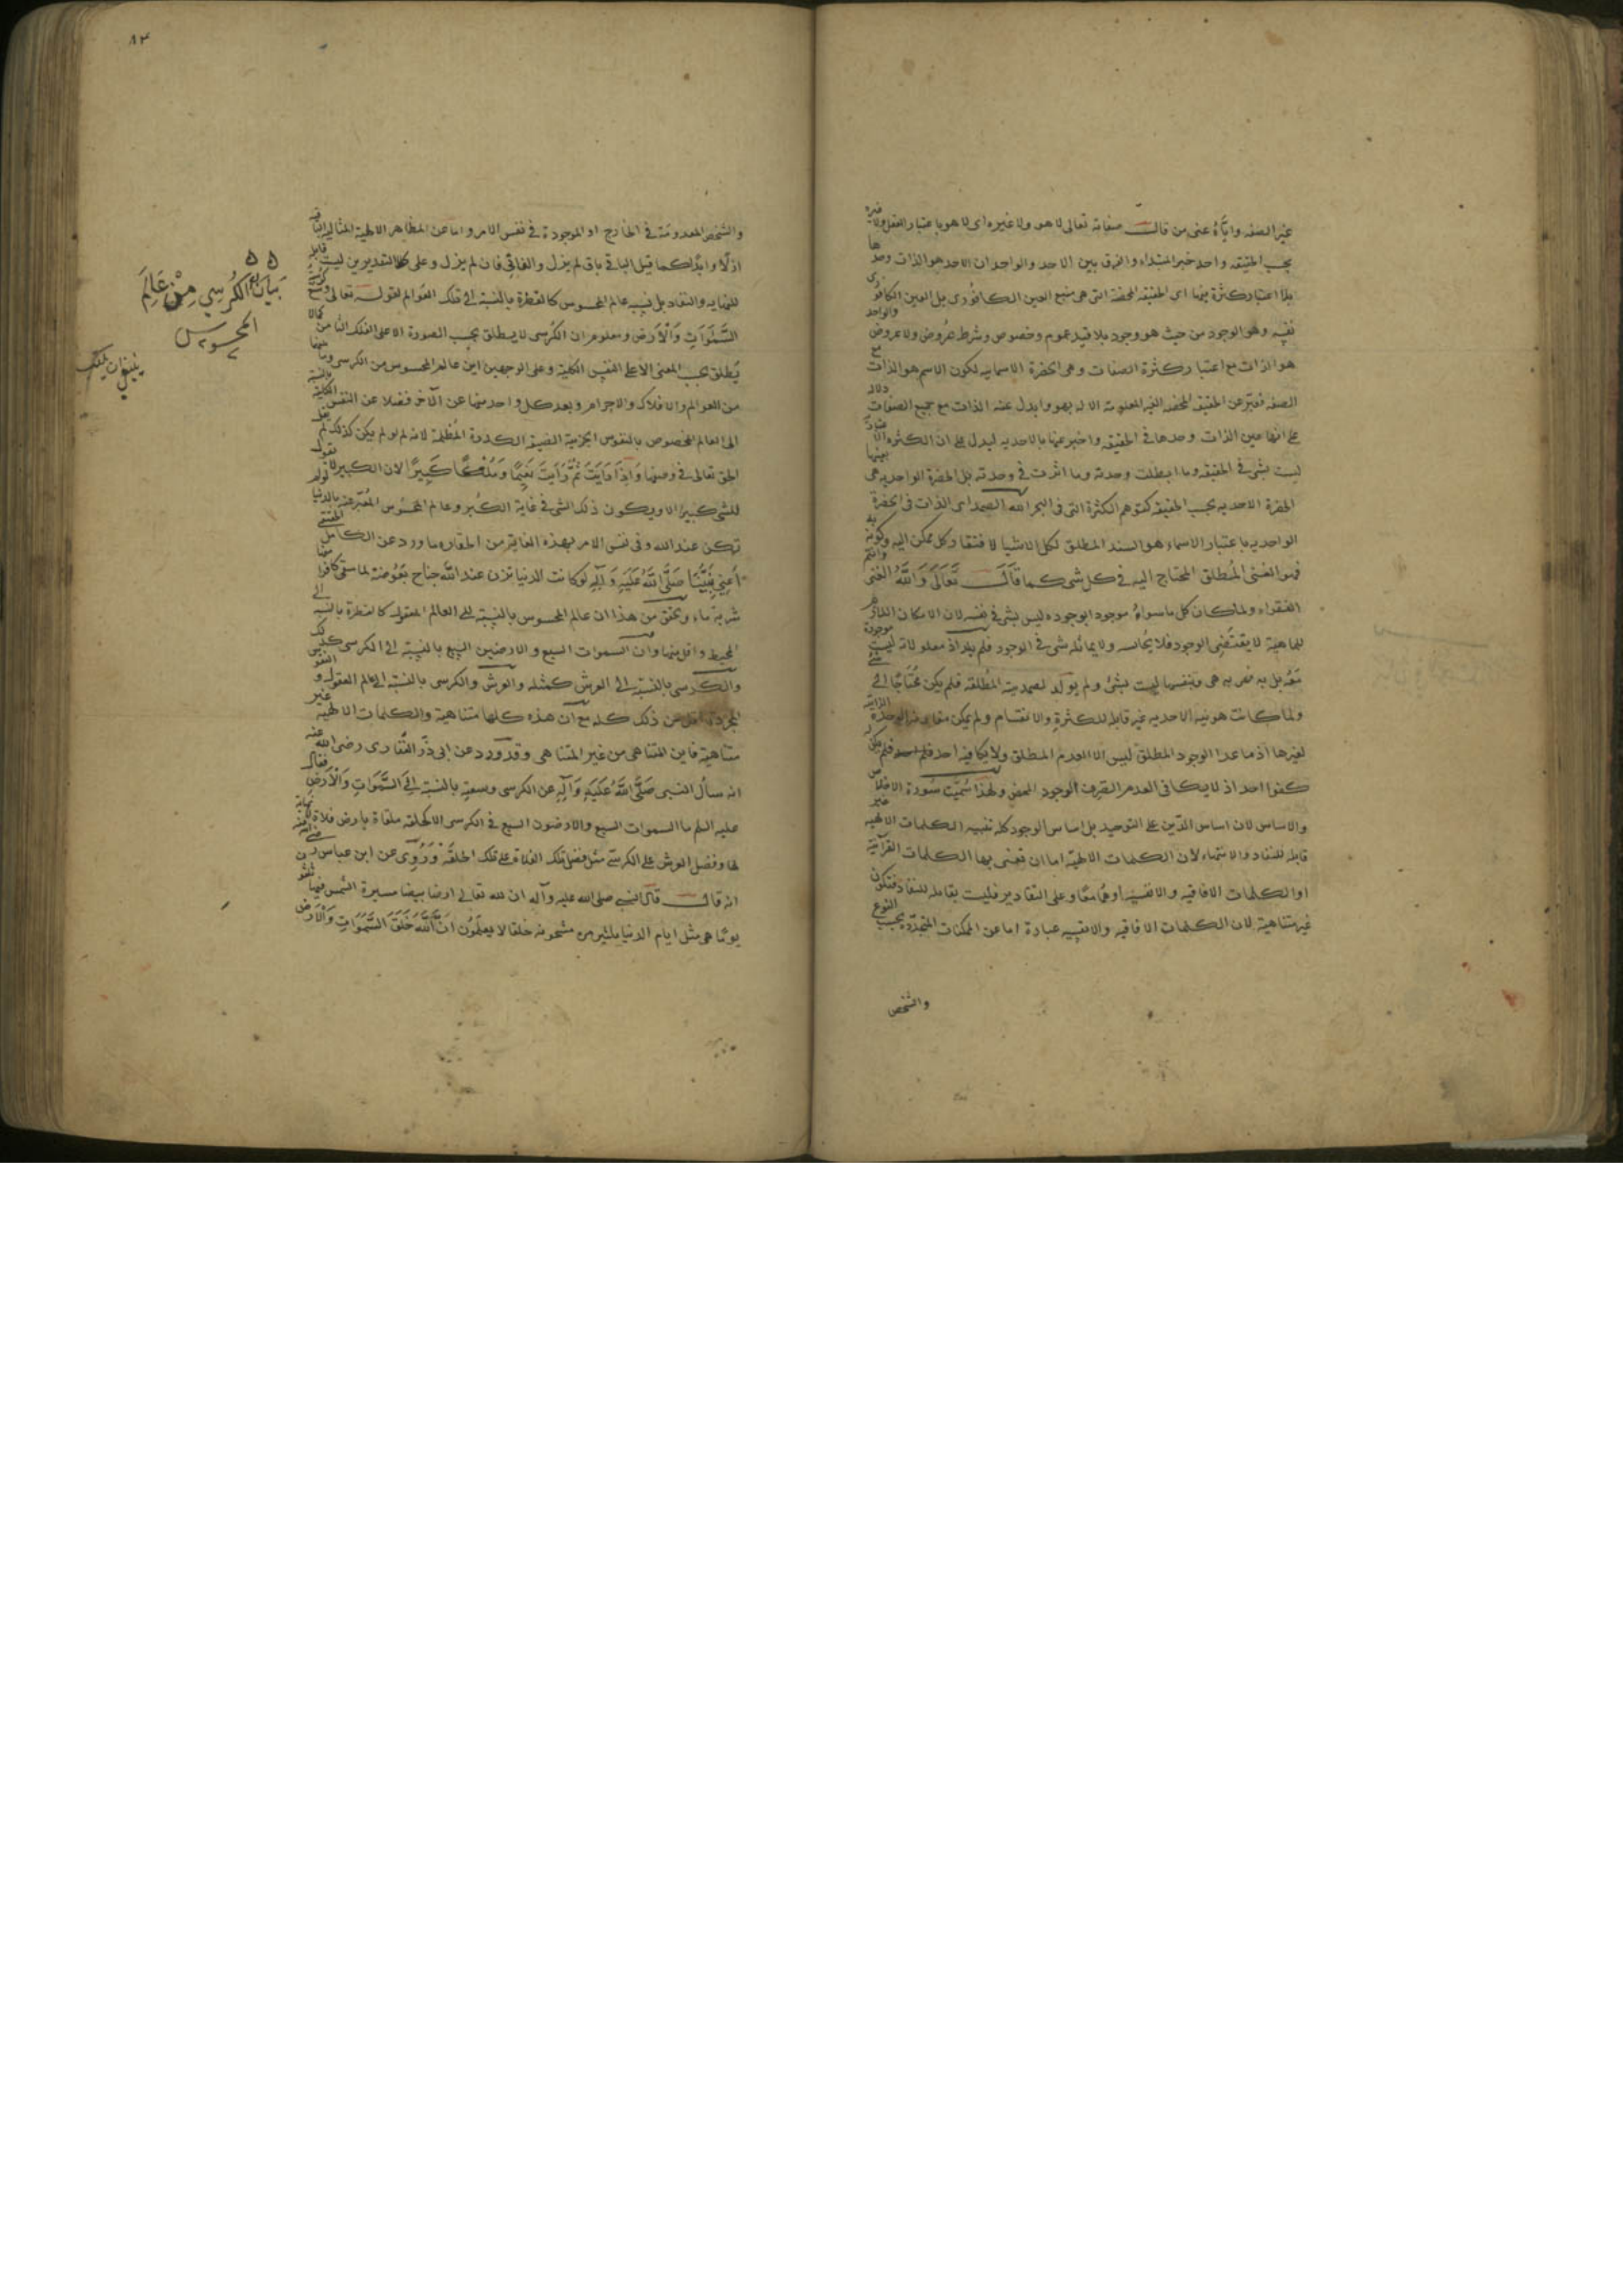 غير الصفه واياه عنى من قال صفاته تعالى لا هو ولا غيره اى لا هو باعتبار العقل ولا غيره
بحسب الحقيقه واحد خبر المبتداء والفرق بين الاحد والواحد ان الاحد هو الذات وحدها
بلا اعتبار كثرة فيها اى الحقيقه المحضة التى هى منبع العين الكافورى بل العين الكافورى
نفسه وهو الوجود من حيث هو وجود بلا قيد عموم وخصوص وشرط عروض ولا عروض والواحد
هو الذات مع اعتبار كثرة الصفات وهى الحضرة الاسمائيه لكون الاسم هو الذات مع
الصفه فعبر عن الحقيقه المحضه الغير المعلومة الا له بهو وابدل عنه الذات مع جميع الصفات دلالة
على انها عين الذات وحدها فى الحقيقه واخبر عنها بالاحديه ليدل على ان الكثره الاعتباريه
ليست بشى فى الحقيقه وما ابطلت وحدته وما اثرت فى وحدته بل الحضرة الواحديه هى بعينها
الحضرة الاحديه بحسب الحقيقه كتوهم الكثرة التى فى البحر الله الصمد اى الذات فى الحضرة
الواحديه باعتبار الاسماء هو السند المطلق لكل الاشيا لافتقار كل ممكن اليه وكونه به
فهو الغنى المطلق المحتاج اليه فى كل شى كما قال تعالى والله الغنى وانتم
الفقراء ولما كان كل ما سواه موجودا بوجوده ليس بشى فى نفسه لان الامكان اللازم
للماهية لا يقتضى الوجود فلا يجانسه ولا يماثله شى فى الوجود فلم يلد اذ معلولاته ليست موجودة
معه بل به فهى به هى وبنفسها ليست بشئ ولم يولد لصمديته المطلقه فلم يكن محتاجا الى شئ
ولما كانت هويته الاحديه غير قابله للكثرة والانقسام ولم يكن مقارنة الوحدة الذاتيه
لغيرها اذ ما عدا الوجود المطلق ليس الا العدم المطلق ولا يكافيه احد فلم يكن له
كفوا احد اذ لا يكافى العدم الصرف الوجود المحض ولهذا سميت سورة الاخلاص
والاساس لان اساس الدين على التوحيد بل اساس الوجود كله تنبيه الكلمات الالهيه غير
قابله للنفاد والانتهاء لان الكلمات الالهيه اما ان نعنى بها الكلمات القرآنية
او الكلمات الافاقيه والانفسيه او هما معا وعلى التقادير فليست بقابله للنفاد فتكون
غير متناهية لان الكلمات الافاقيه والانفسيه عبارة اما عن الممكنات المتجدده بحسب النوع
والشخص
٨٣
والشخص المعدومة فى الخارج او الموجودة فى نفس الامر واما عن المظاهر الالهية المثاليه الباقيه
ازلا وابدا كما قيل الباقى باق لم يزل والفانى فان لم يزل وعلى كلا التقديرين ليست قابله
للنهايه والنفاد بل نسبه عالم المحسوس كالقطرة بالنسبة الى تلك العوالم لقوله تعالى وسع كرسيه
السموات والارض ومعلوم ان الكرسى لا يطلق بحسب الصورة الا على الفلك الثامن كما لا
يطلق بحسب المعنى الا على النفس الكلية وعلى الوجهين اين عالم المحسوس من الكرسى وما بينهما
من العوالم والافلاك والاجرام وبعد كل واحد منها عن الآخر فضلا عن النفس الكلية بالنسبة
الى العالم المخصوص بالنفوس الجزئية الضيقه الكدرة المظلمة لانه لو لم يكن كذلك لم يقل
الحق تعالى فى وصفها واذا رايت ثم رايت نعيما وملكا كبيرا لان الكبير لا يقول
للشى كبيرا الا ويكون ذلك الشى فى غاية الكبر وعالم المحسوس المعبر عنه بالدنيا لو لم
تكن عند الله وفى نفس الامر بهذه الغاية من الحقارة ما ورد عن الكامل
اعنى نبينا صلى الله عليه وآله لو كانت الدنيا تزن عند الله جناح بعوضة لما سقى كافرا منها
شربة ماء وتحقق من هذا ان عالم المحسوس بالنسبة الى العالم المعقول كالقطرة بالنسبه الى
المحيط واقل منها وان السموات السبع والارضين السبع بالنسبة الى الكرسى كذلك
والكرسى بالنسبة الى العرش كمثله والعرش والكرسى بالنسبة الى عالم العقول والنفوس
المجردة اقل من ذلك كله مع ان هذه كلها متناهية والكلمات الالهيه غير
متناهية فاين المتناهى من غير المتناهى وقد ورد عن ابى ذر الغفارى رضى الله عنه
انه سال النبى صلى الله عليه وآله عن الكرسى وسعته بالنسبة الى السموات والارض فقال
عليه السلم ما السموات السبع والارضون السبع فى الكرسى الا كحلقه ملقاة بارض فلاة لا نهاية
لها وفضل العرش على الكرسى مثل فضل تلك الفلاة على تلك الحلقة وروى عن ابن عباس رضى الله عنه
انه قال قال النبى صلى الله عليه وآله ان لله تعالى ارضا بيضا مسيرة الشمس فيها ثلثون
يوما هى مثل ايام الدنيا ثلثين مرة مشحونه خلقا لا يعلمون ان الله خلق السموات والارض
بيان الكرسي من عالم
المحسوس